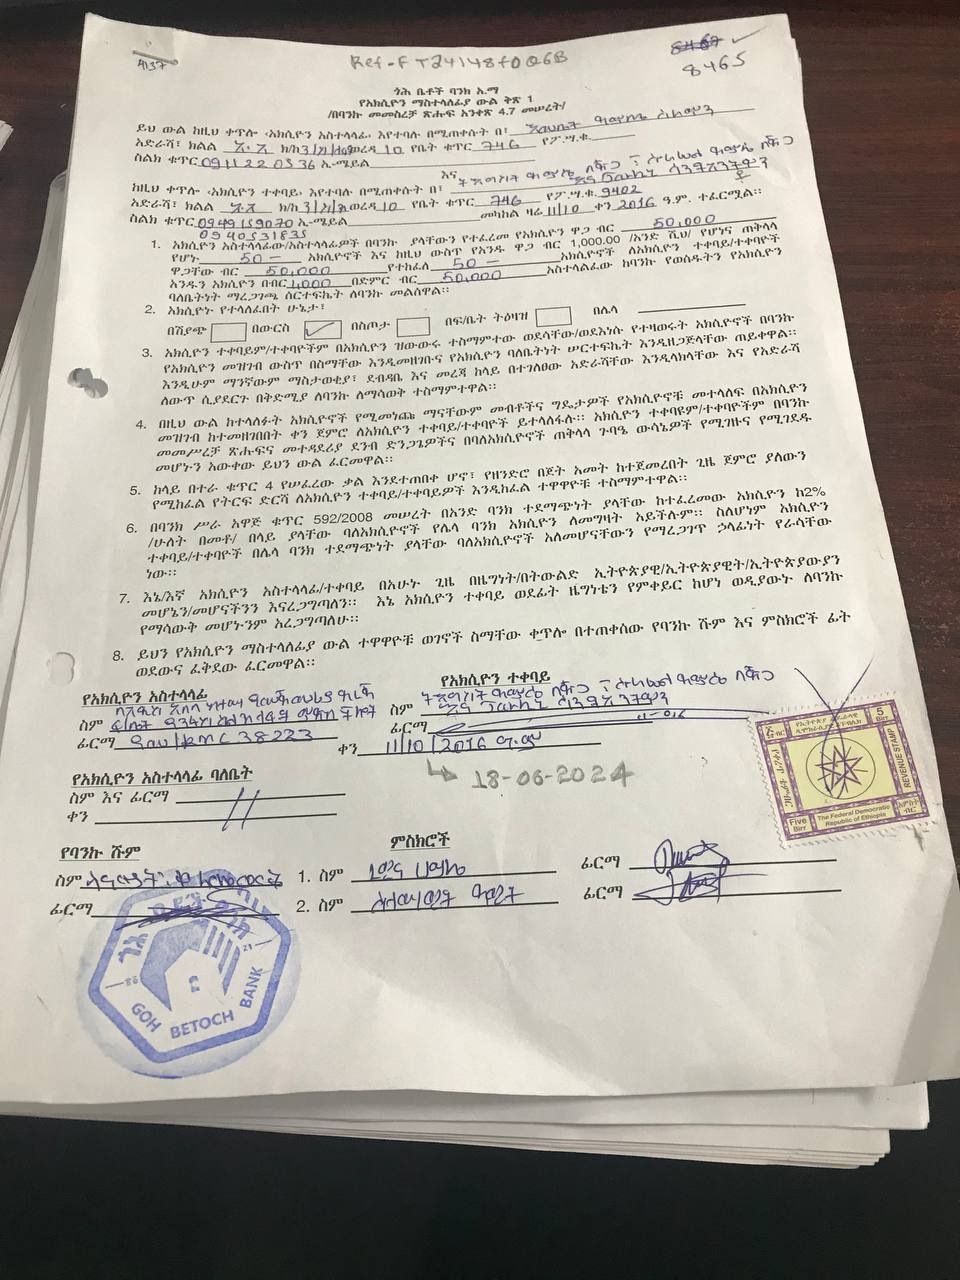 4137
Ref-FT24148f0Q6B
8465
ጎሕ ቤቶች ባንክ አ.ማ
የአክሲዮን ማስተላለፊያ ውል ቅጽ 1
/በባንኩ መመስረቻ ጽሑፍ አንቀጽ 4.7 መሠረት/
ይህ ውል ከዚህ ቀጥሎ ‹አክሲዮን አስተላላፊ› እየተባሉ በሚጠቀሱት በ፣
አድራሻ፣ ክልል አ.አ ክ/ከ ወረዳ 10 የቤት ቁጥር 746 የፖ.ሣ.ቁ.
ስልክ ቁጥር 0911220536 ኢ-ሜይል
እና
ከዚህ ቀጥሎ ‹አክሲዮን ተቀባይ› እየተባሉ በሚጠቀሱት በ፣
አድራሻ፣ ክልል አ.አ ክ/ከ ወረዳ 10 የቤት ቁጥር 746 የፖ.ሣ.ቁ. 9402
ስልክ ቁጥር 0949159070 ኢ-ሜይል መካከል ዛሬ 11/10 ቀን 2016 ዓ.ም. ተፈርሟል።
0940531835
1. አክሲዮን አስተላላፊው/አስተላላፊዎች በባንኩ ያላቸውን የተፈረመ የአክሲዮን ዋጋ ብር 50,000
የሆኑ 50 – አክሲዮኖች እና ከዚህ ውስጥ የአንዱ ዋጋ ብር 1,000.00 /አንድ ሺህ/ የሆነና ጠቅላላ
ዋጋቸው ብር 50,000 የተከፈለ 50 – አክሲዮኖች ለአክሲዮን ተቀባይ/ተቀባዮች
አንዱን አክሲዮን በብር 1,000 በድምር ብር 50,000 አስተላልፈው ከባንኩ የወሰዱትን የአክሲዮን
ባለቤትነት ማረጋገጫ ሰርተፍኬት ለባንኩ መልሰዋል።
2. አክሲዮኑ የተላለፈበት ሁኔታ፣
በሽያጭ በውርስ ✓ በስጦታ በፍ/ቤት ትዕዛዝ በሌላ
3. አክሲዮን ተቀባይም/ተቀባዮችም በአክሲዮን ዝውውሩ ተስማምተው ወደሳቸው/ወደእነሱ የተዛወሩት አክሲዮኖች በባንኩ
የአክሲዮን መዝገብ ውስጥ በስማቸው እንዲመዘገቡና የአክሲዮን ባለቤትነት ሠርተፍኬት እንዲዘጋጅላቸው ጠይቀዋል።
እንዲሁም ማንኛውም ማስታወቂያ፣ ደብዳቤ እና መረጃ ከላይ በተገለፀው አድራሻቸው እንዲላክላቸው እና የአድራሻ
ለውጥ ሲያደርጉ በቅድሚያ ለባንኩ ለማሳወቅ ተስማምተዋል።
4. በዚህ ውል ከተላለፉት አክሲዮኖች የሚመነጩ ማናቸውም መብቶችና ግዴታዎች የአክሲዮኖቹ መተላለፍ በአክሲዮን
መዝገብ ከተመዘገበበት ቀን ጀምሮ ለአክሲዮን ተቀባይ/ተቀባዮች ይተላለፋሉ። አክሲዮን ተቀባዩም/ተቀባዮችም በባንኩ
መመሥረቻ ጽሑፍና መተዳደሪያ ደንብ ድንጋጌዎችና በባለአክሲዮኖች ጠቅላላ ጉባዔ ውሳኔዎች የሚገዙና የሚገደዱ
መሆኑን አውቀው ይህን ውል ፈርመዋል።
5. ከላይ በተራ ቁጥር 4 የሠፈረው ቃል እንደተጠበቀ ሆኖ፣ የዘንድሮ በጀት አመት ከተጀመረበት ጊዜ ጀምሮ ያለውን
የሚከፈል የትርፍ ድርሻ ለአክሲዮን ተቀባይ/ተቀባይዎች እንዲከፈል ተዋዋዮቹ ተስማምተዋል።
6. በባንክ ሥራ አዋጅ ቁጥር 592/2008 መሠረት በአንድ ባንክ ተደማጭነት ያላቸው ከተፈረመው አክሲዮን ከ2%
/ሁለት በመቶ/ በላይ ያላቸው ባለአክሲዮኖች የሌላ ባንክ አክሲዮን ለመግዛት አይችሉም። ስለሆነም አክሲዮን
ተቀባይ/ተቀባዮች በሌላ ባንክ ተደማጭነት ያላቸው ባለአክሲዮኖች አለመሆናቸውን የማረጋገጥ ኃላፊነት የራሳቸው
ነው።
7. እኔ/እኛ አክሲዮን አስተላላፊ/ተቀባይ በአሁኑ ጊዜ በዜግነት/በትውልድ ኢትዮጵያዊ/ኢትዮጵያዊት/ኢትዮጵያውያን
መሆኔን/መሆናችንን እናረጋግጣለን። እኔ አክሲዮን ተቀባይ ወደፊት ዜግነቴን የምቀይር ከሆነ ወዲያውኑ ለባንኩ
የማሳውቅ መሆኑንም አረጋግጣለሁ።
8. ይህን የአክሲዮን ማስተላለፊያ ውል ተዋዋዮቹ ወገኖች ስማቸው ቀጥሎ በተጠቀሰው የባንኩ ሹም እና ምስክሮች ፊት
ወደውና ፈቅደው ፈርመዋል።
የአክሲዮን አስተላላፊ የአክሲዮን ተቀባይ
ስም ስም
ፊርማ 38223 ፊርማ
ቀን 11/10/2016 ዓ.ም
18-06-2024
የአክሲዮን አስተላላፊ ባለቤት
ስም እና ፊርማ
ቀን
የባንኩ ሹም ምስክሮች
ስም 1. ስም ፊርማ
ፊርማ 2. ስም ፊርማ
ጎሕ ቤቶች ባንክ
GOH BETOCH BANK
5 Birr
REVENUE STAMP
Five Birr
The Federal Democratic Republic of Ethiopia
አምስት ብር